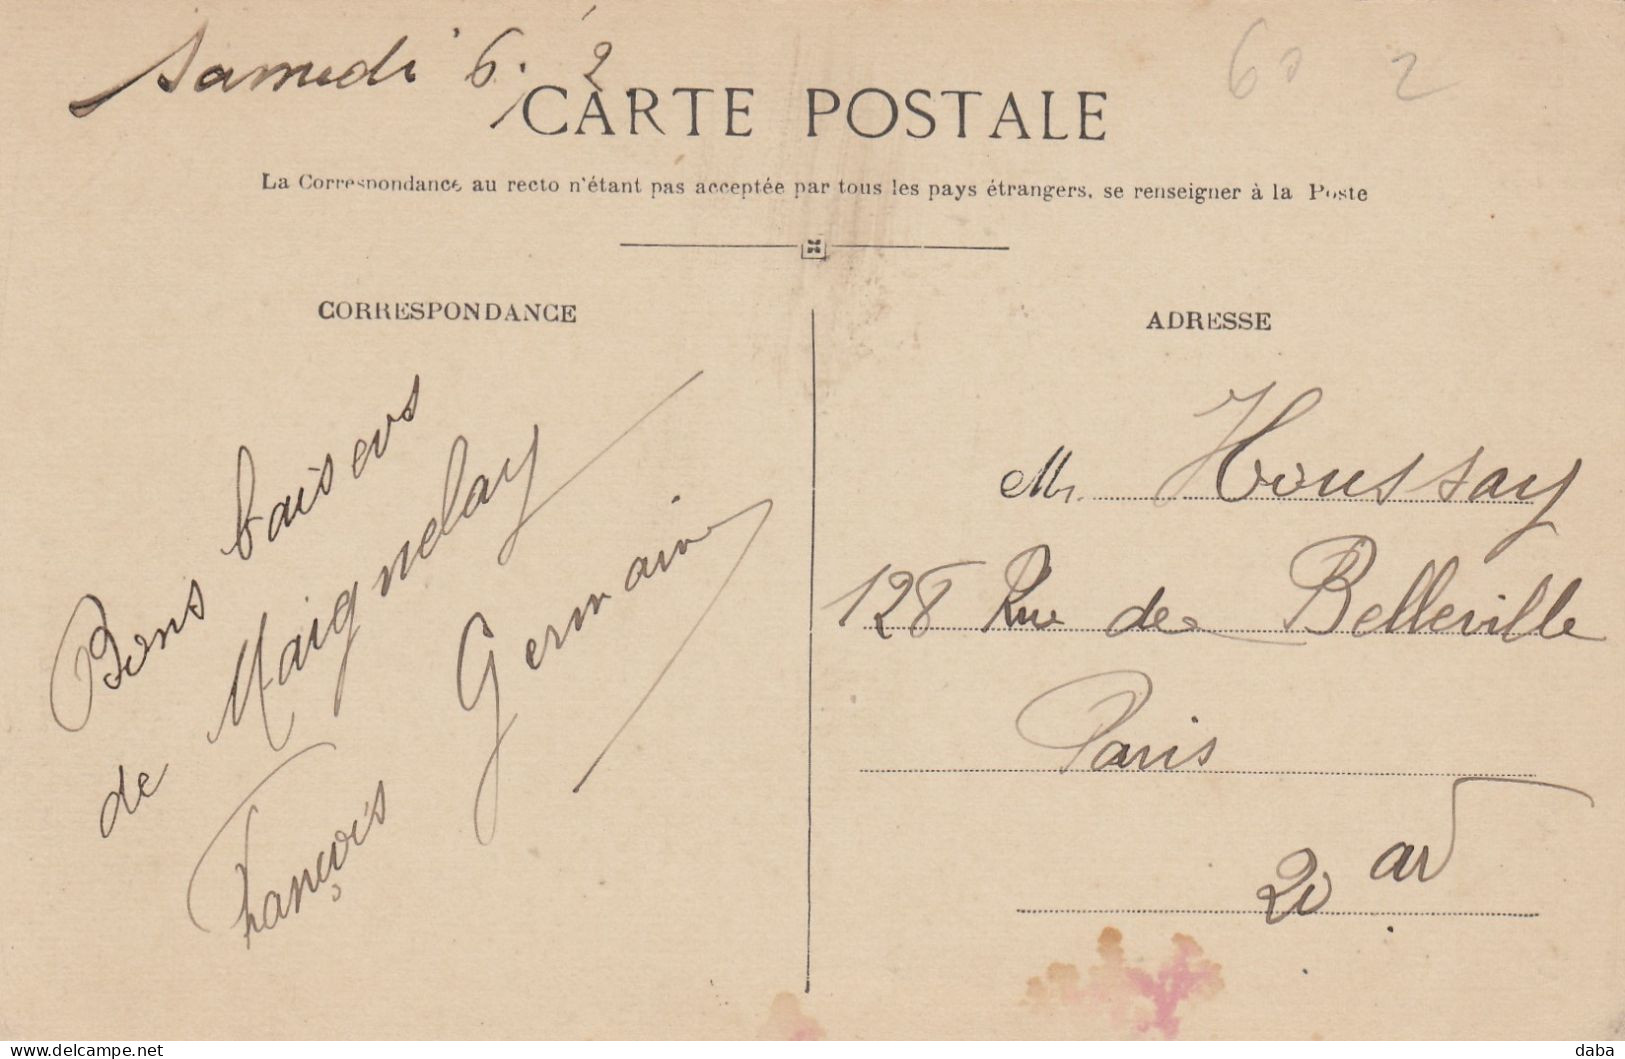 Samedi 6. 2
60 2
CARTE POSTALE
La Correspondance au recto n'étant pas acceptée par tous les pays étrangers, se renseigner à la Poste
CORRESPONDANCE
Bons baisers
de Maignelay
François Germain
ADRESSE
Mr. Houssay
128 Rue de Belleville
Paris
20 ar
delcampe.net
daba